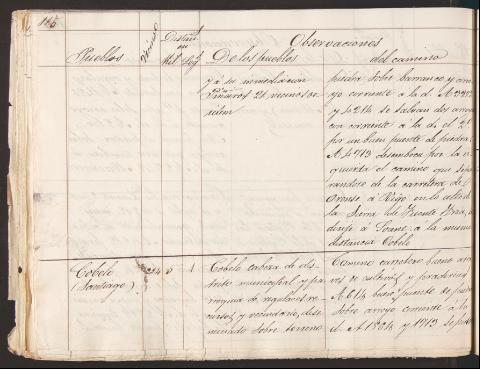 115
Pueblos
Vecinos
Distanc.
en
Kil.
Observaciones
De los pueblos
del camino
y á su inmediacion
Piñeiros 21 vecinos se
piedra sobre barranco y arro
yo corriente á la d. A
y 4214 se salvan dos arroyos
con corriente á la d. el 2º
por un buen puente de piedra.
A 4913 desemboca por la iz
quierda el camino que sepa
randose de la carretera de
Orense á Vigo en lo alto de
la Sierra de Fuente
dirije á á la misma
distancia Cobelo
Cobelo
(Santiago)
294
5
1
Cobelo cabeza de dis
trito municipal y par
roquia de regulares re
cursos y vecindario, dise
minado sobre terreno
Camino carretero bueno
de cultivos y praderias
A 614 buen puente de piedra
sobre arroyo corriente á la
d. A 1804 y 1913 se